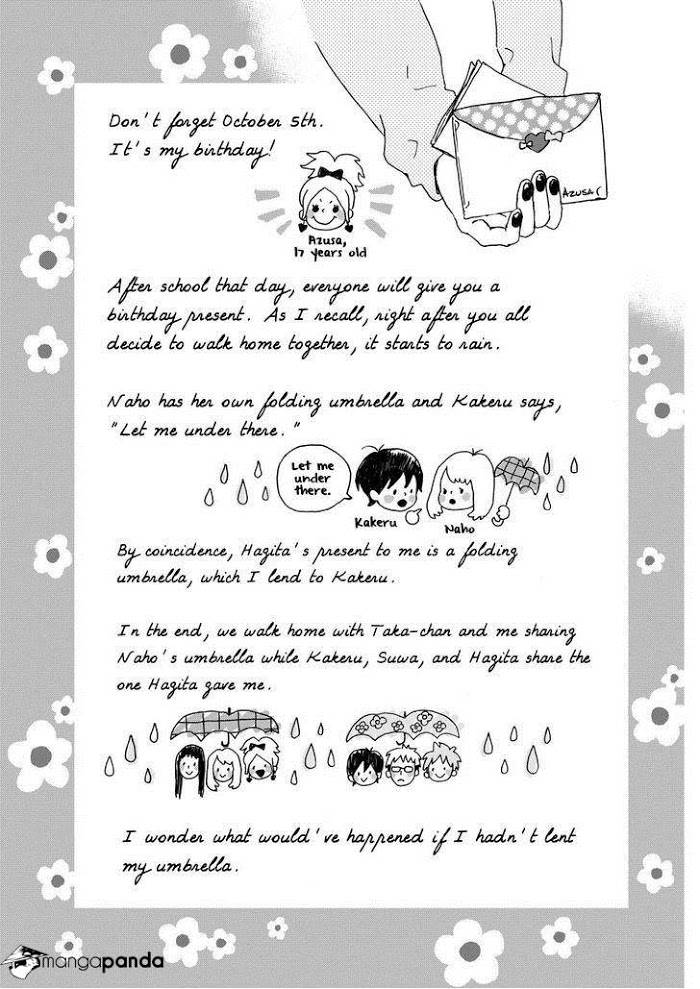 Don't forget October 5th.
It's my birthday!
AZUSA (
Azusa,
17 years old
After school that day, everyone will give you a
birthday present. As I recall, right after you all
decide to walk home together, it starts to rain.
Naho has her own folding umbrella and Kakeru says,
"Let me under there."
Let me
under
there.
Kakeru
Naho
By coincidence, Hagita's present to me is a folding
umbrella, which I lend to Kakeru.
In the end, we walk home with Taka-chan and me sharing
Naho's umbrella while Kakeru, Suwa, and Hagita share the
one Hagita gave me.
I wonder what would've happened if I hadn't lent
my umbrella.
mangapanda